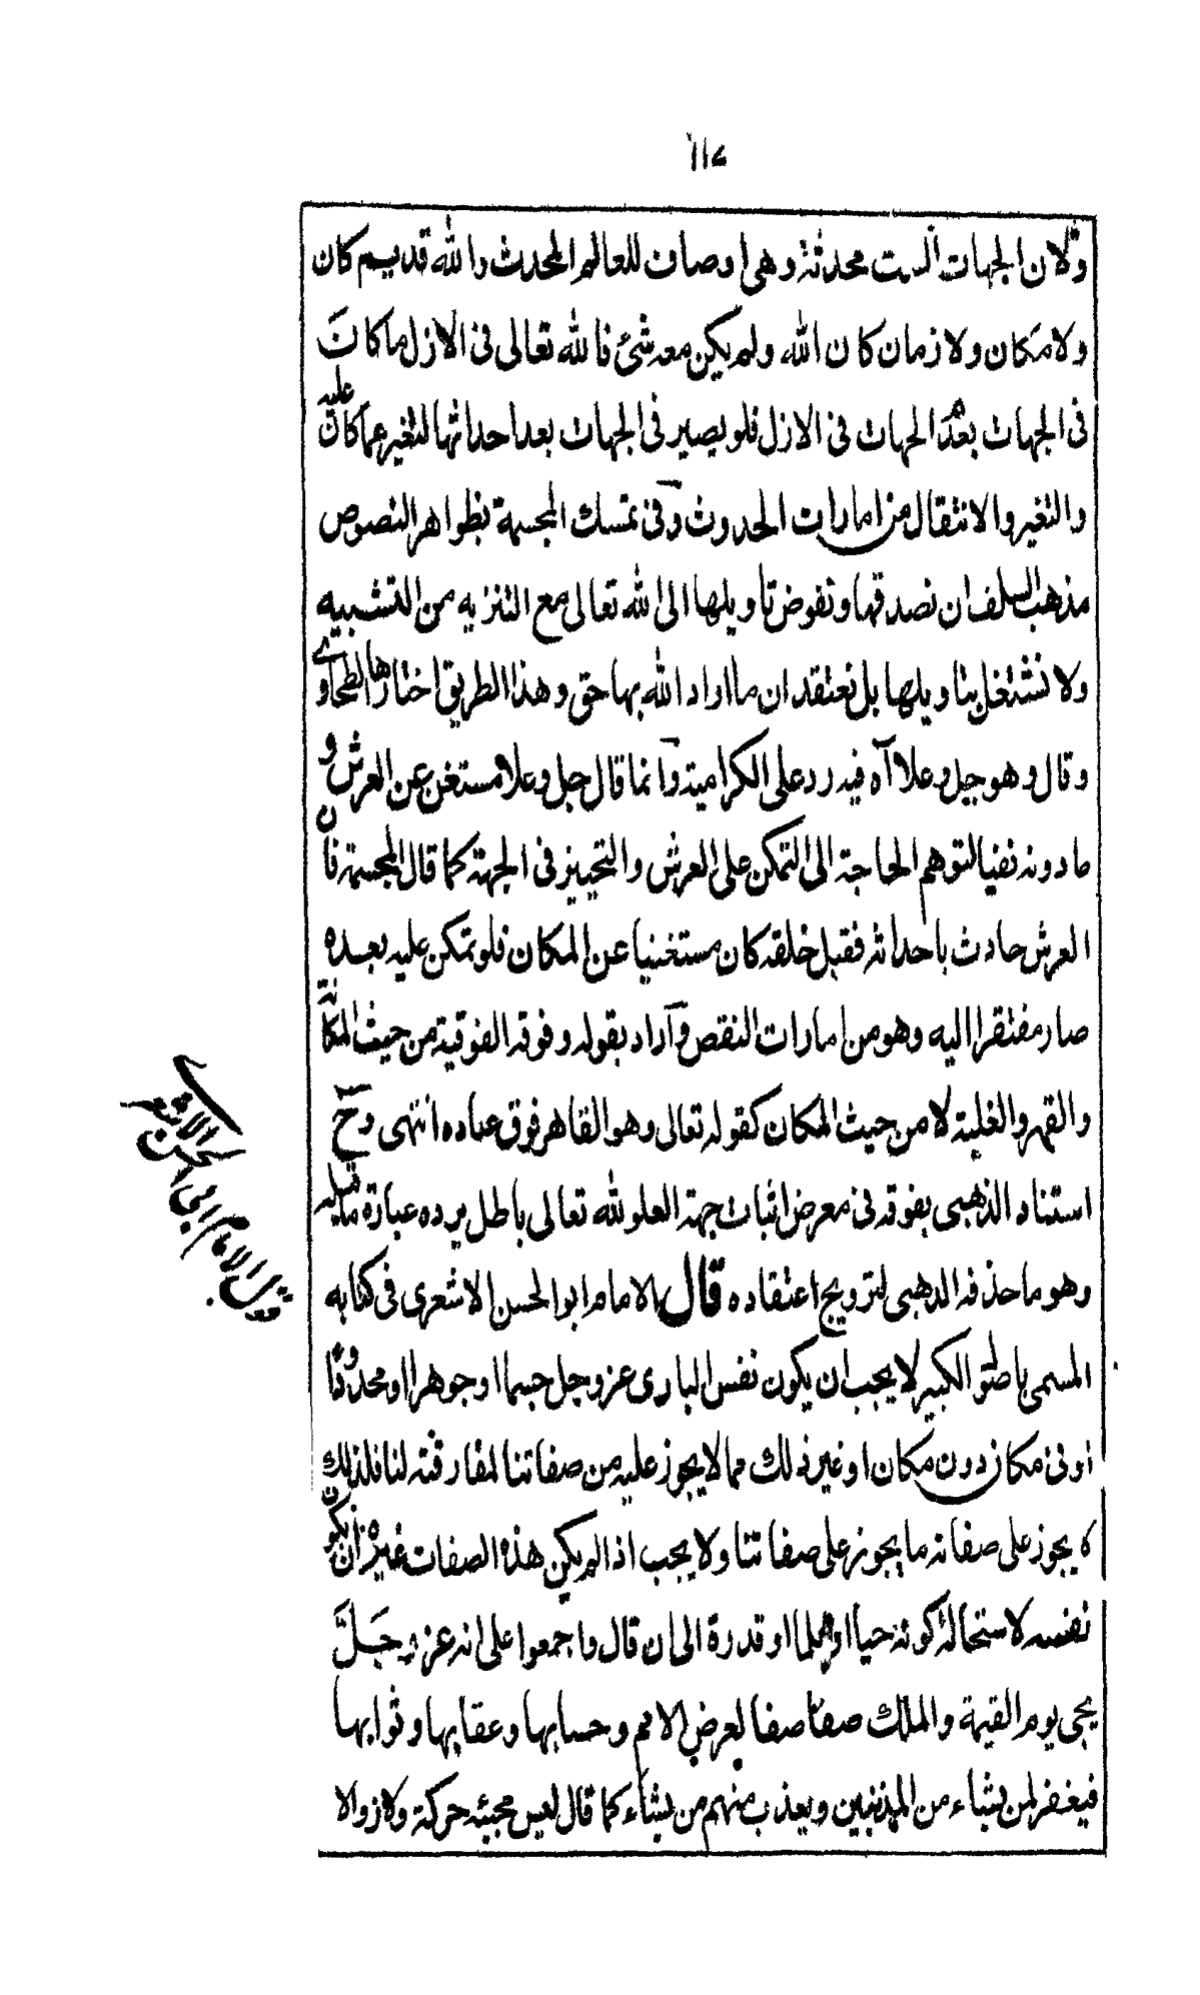 ١١٤
ولان الجهات الست محدثة وهى اوصاف للعالم المحدث والله قديم كان
ولا مكان ولا زمان كان الله ولم يكن معه شئ فالله تعالى فى الازل ما كان
فى الجهات بعد الجهات فى الازل فلو يصير فى الجهات بعد احداثها لتغير عما كان عليه
والتغير والانتقال من امارات الحدوث وفى تمسك المجسمة بظواهر النصوص
مذهب السلف ان نصدقها ونفوض تاويلها الى الله تعالى مع التنزيه من التشبيه
ولا نشتغل بتاويلها بل نعتقد ان ما اراد الله بها حق وهذا الطريق اختارها الطحاوى
وقال وهو جل وعلا آه فيه رد على الكرامية وانما قال جل وعلا مستغن عن العرش و
ما دونه نفيا لتوهم الحاجة الى التمكن على العرش والتحييز فى الجهة كما قال المجسمة فان
العرش حادث باحداثه فقبل خلقه كان مستغنيا عن المكان فلو تمكن عليه بعده
صار مفتقرا اليه وهو من امارات النقص واراد بقوله وفوقه الفوقية من حيث المكانة
والقهر والغلبة لا من حيث المكان كقوله تعالى وهو القاهر فوق عباده انتهى وح
استناد الذهبى بفوقه فى معرض اثبات جهة العلو لله تعالى باطل يرده عبارة ما قبله
وهو ما حذفه الذهبى لترويج اعتقاده قال الامام ابو الحسن الاشعرى فى كتابه
المسمى الكبير لا يجب ان يكون نفس البارى عز وجل جسما او جوهرا او محدودا
او فى مكان دون مكان او غير ذلك مما لا يجوز عليه من صفاتنا لمفارقته لنا فلذلك
لا يجوز على صفاته ما يجوز على صفاتنا ولا يجب اذا لم يكن هذه الصفات غيره ان يكون
نفسه لاستحالة كونه حياا او علما او قدرة الى ان قال واجمعوا على انه عز وجل
يجى يوم القيمة والملك صفا صفا لعرض الامم وحسابها وعقابها وثوابها
فيغفر لمن يشاء من المذنبين ويعذب منهم من يشاء كما قال ليس مجيئه حركة ولا زوالا
قول الامام ابى الحسن الاشعرى